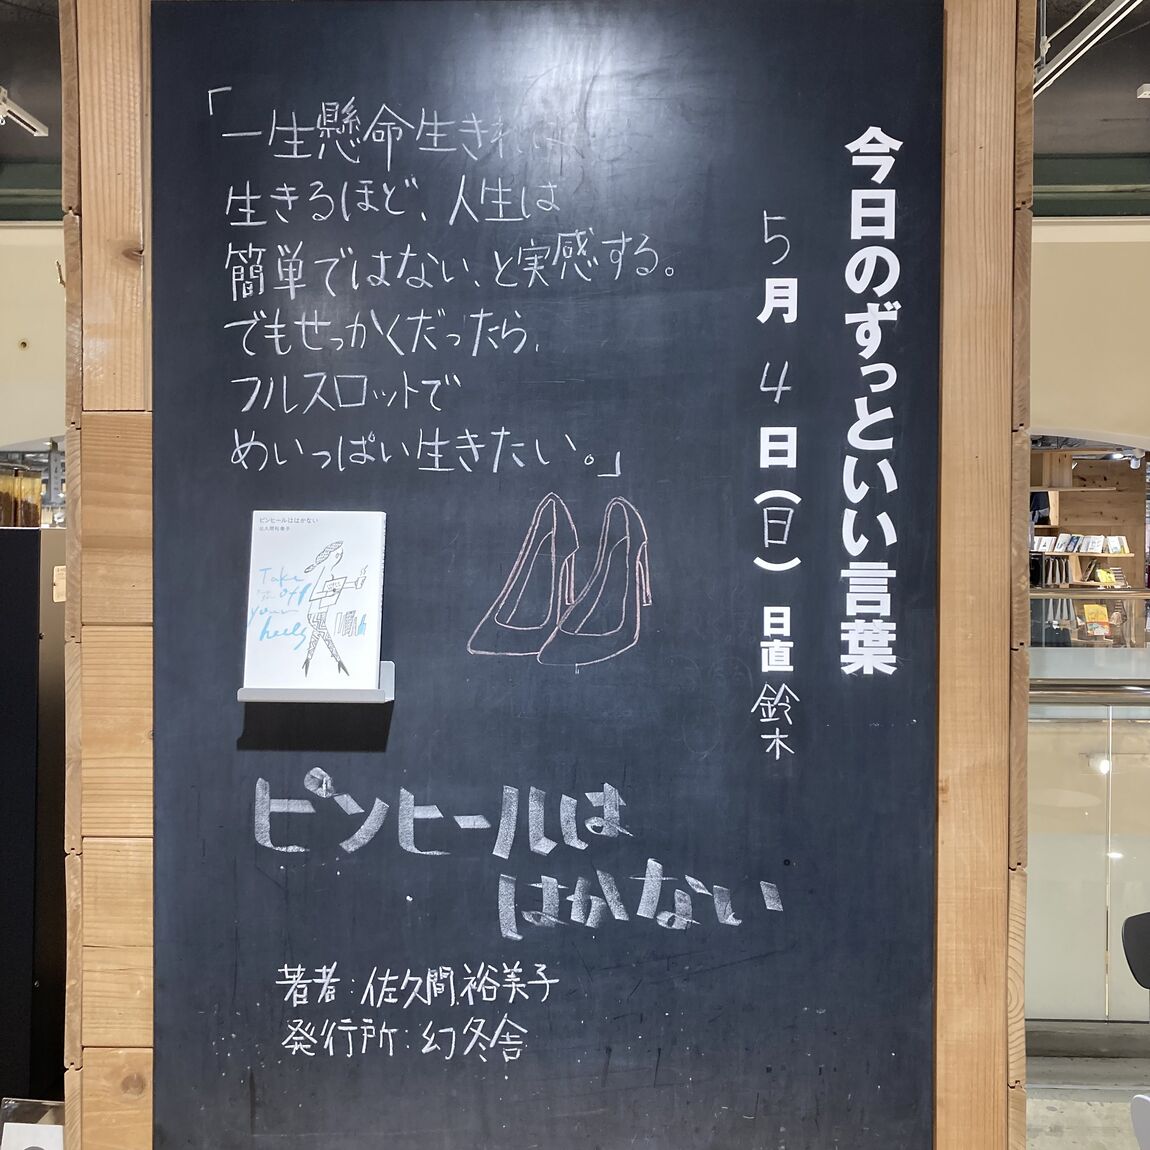 今日のずっといい言葉
5月4日(日) 日直 鈴木
「一生懸命生きれば
生きるほど、人生は
簡単ではない、と実感する。
でもせっかくだったら、
フルスロットで
めいっぱい生きたい。」
ピンヒールははかない
佐久間裕美子
Take
off
your
heels
ピンヒールは
はかない
著者:佐久間裕美子
発行所:幻冬舎